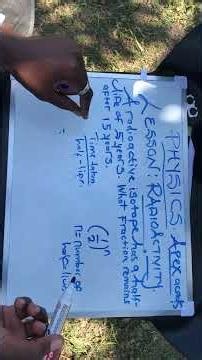 PHYSICS Apex acads
LESSON: RADIOACTIVITY
A radioactive isotope has a half-
life of 5 years. What fraction remains
after 15 years.
Time taken
half-life
(1/2)^n
n = number of
half-lives